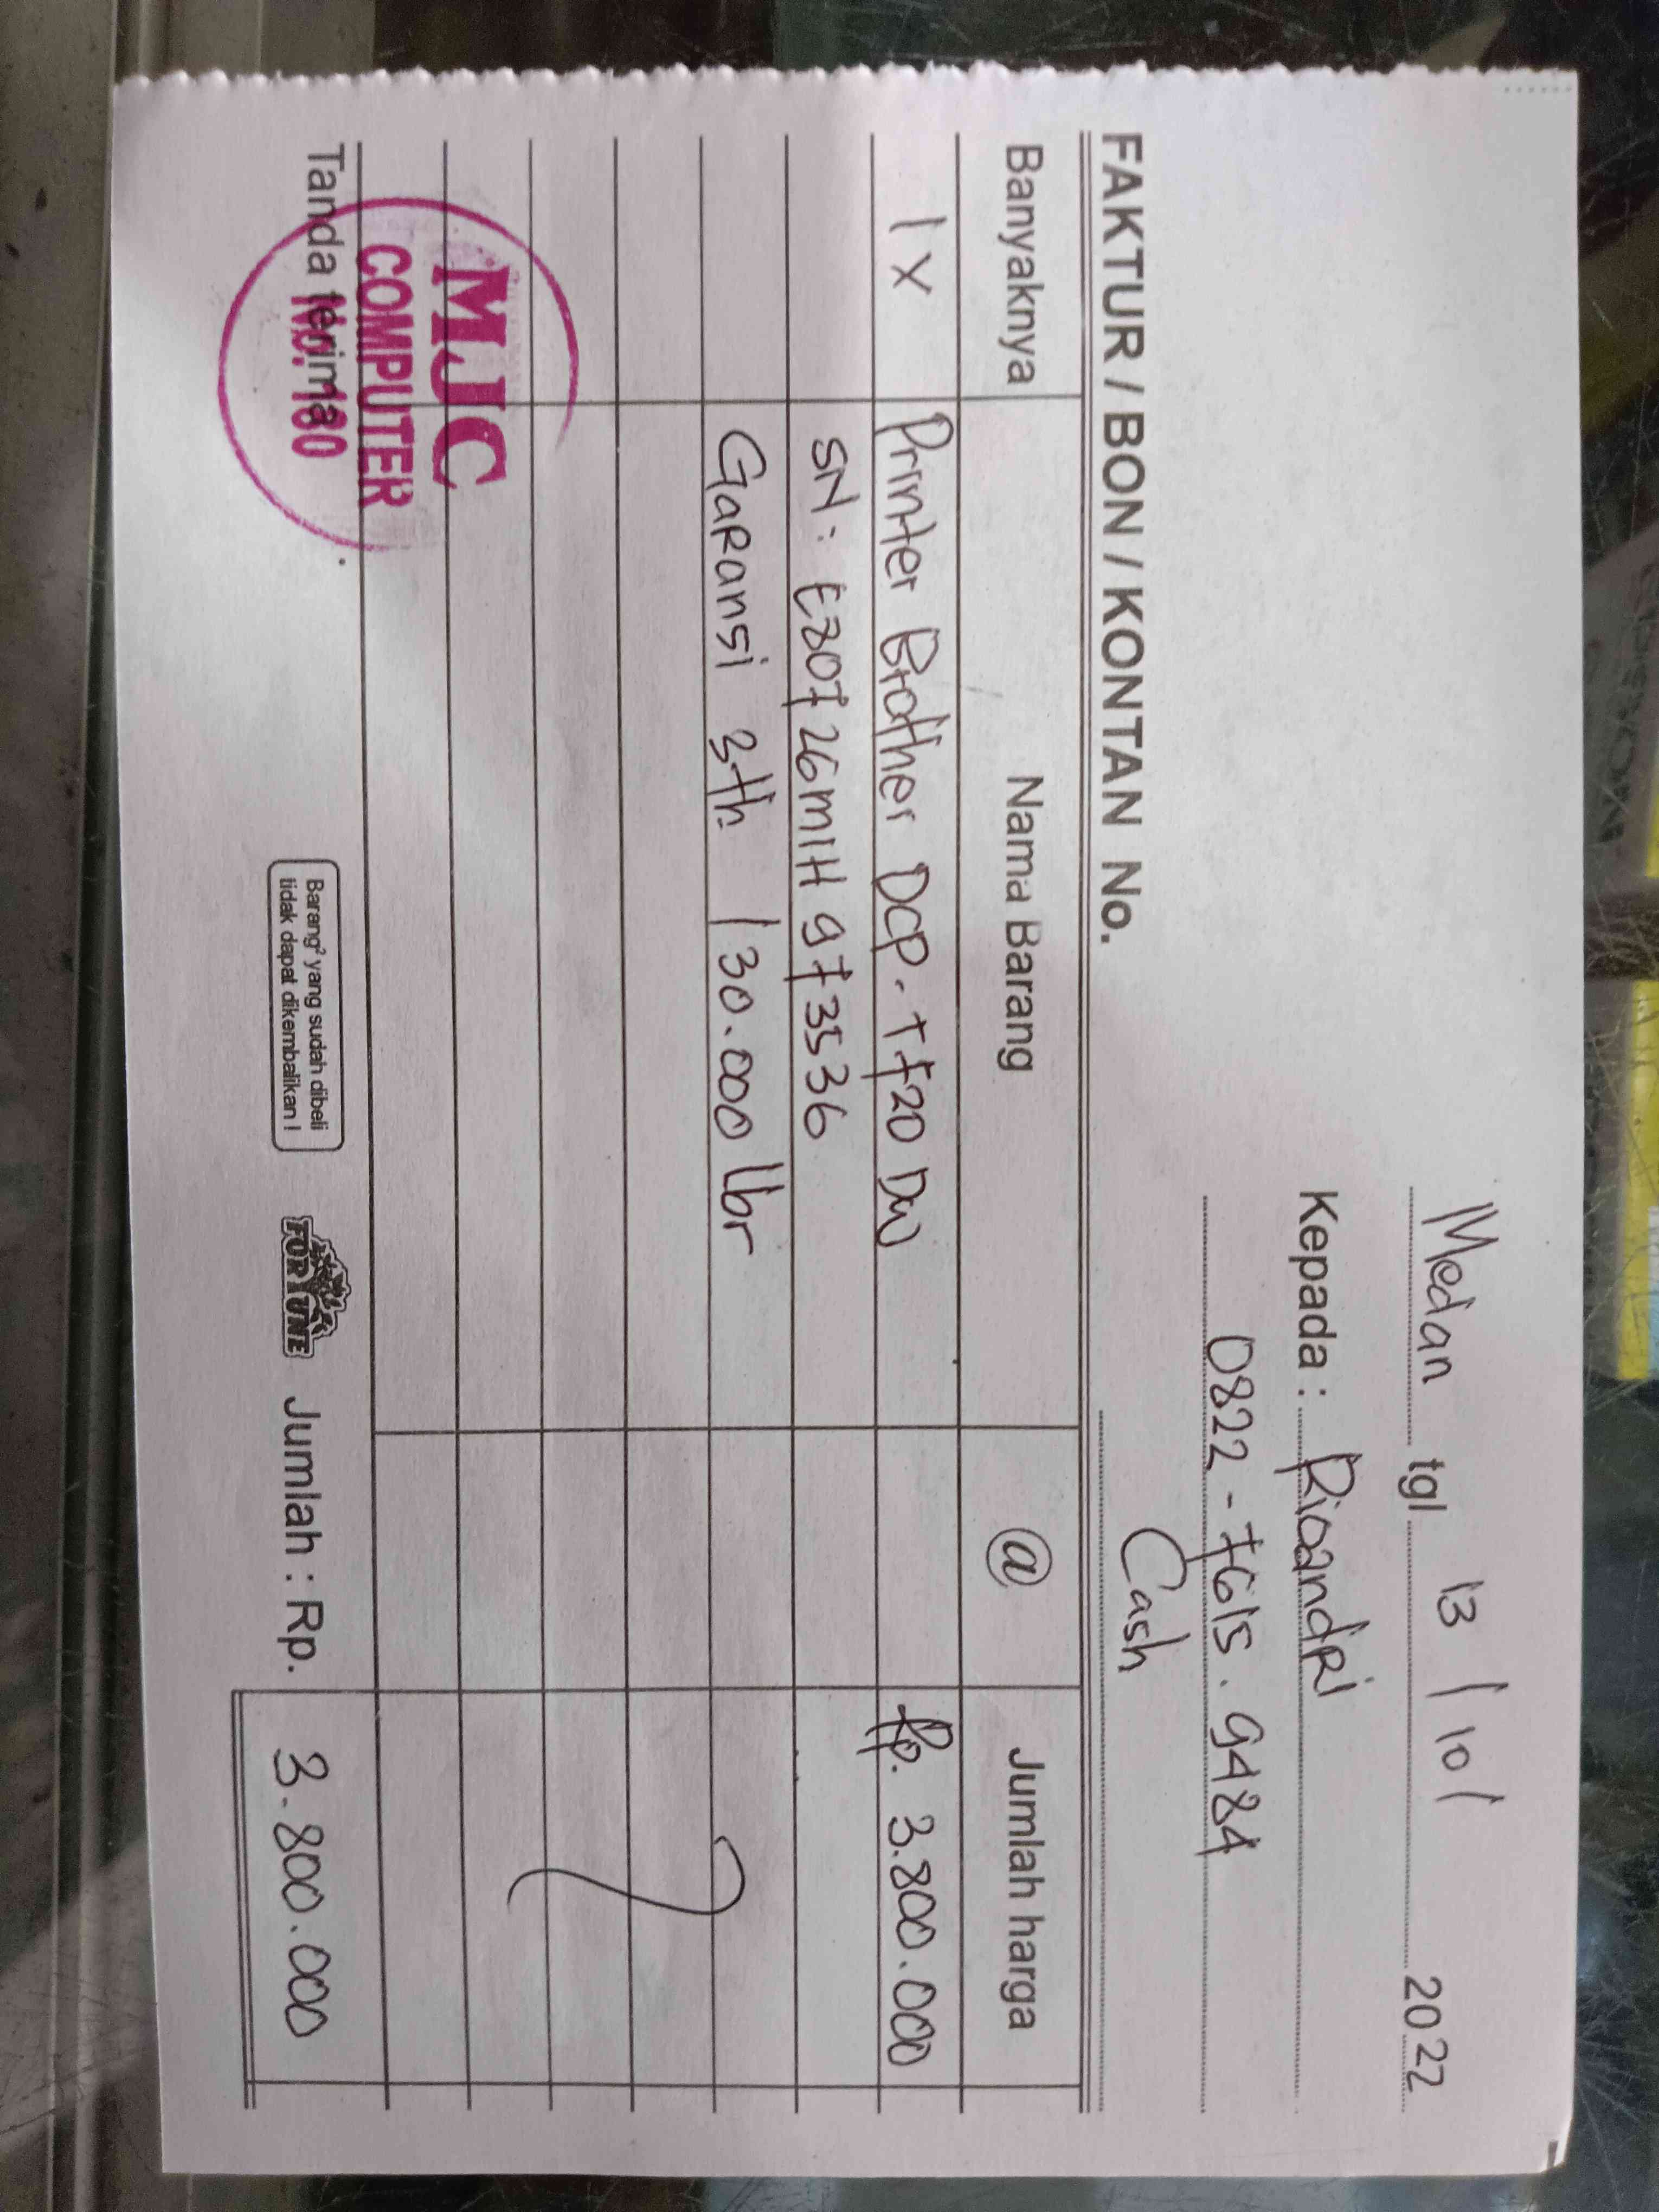 Medan tgl 13 / 10 / 2022
Kepada : Rioandri
0822 - 7615 . 9484
Cash
FAKTUR / BON / KONTAN No.
Banyaknya Nama Barang @ Jumlah harga
1 X Printer Brother DCP - T720 DW Rp. 3.800.000
SN : E80726M1H973536
Garansi 3th / 30.000 lbr
MJC
COMPUTER
No. 160
Tanda terima
Barang² yang sudah dibeli
tidak dapat dikembalikan !
FORTUNE
Jumlah : Rp. 3.800.000